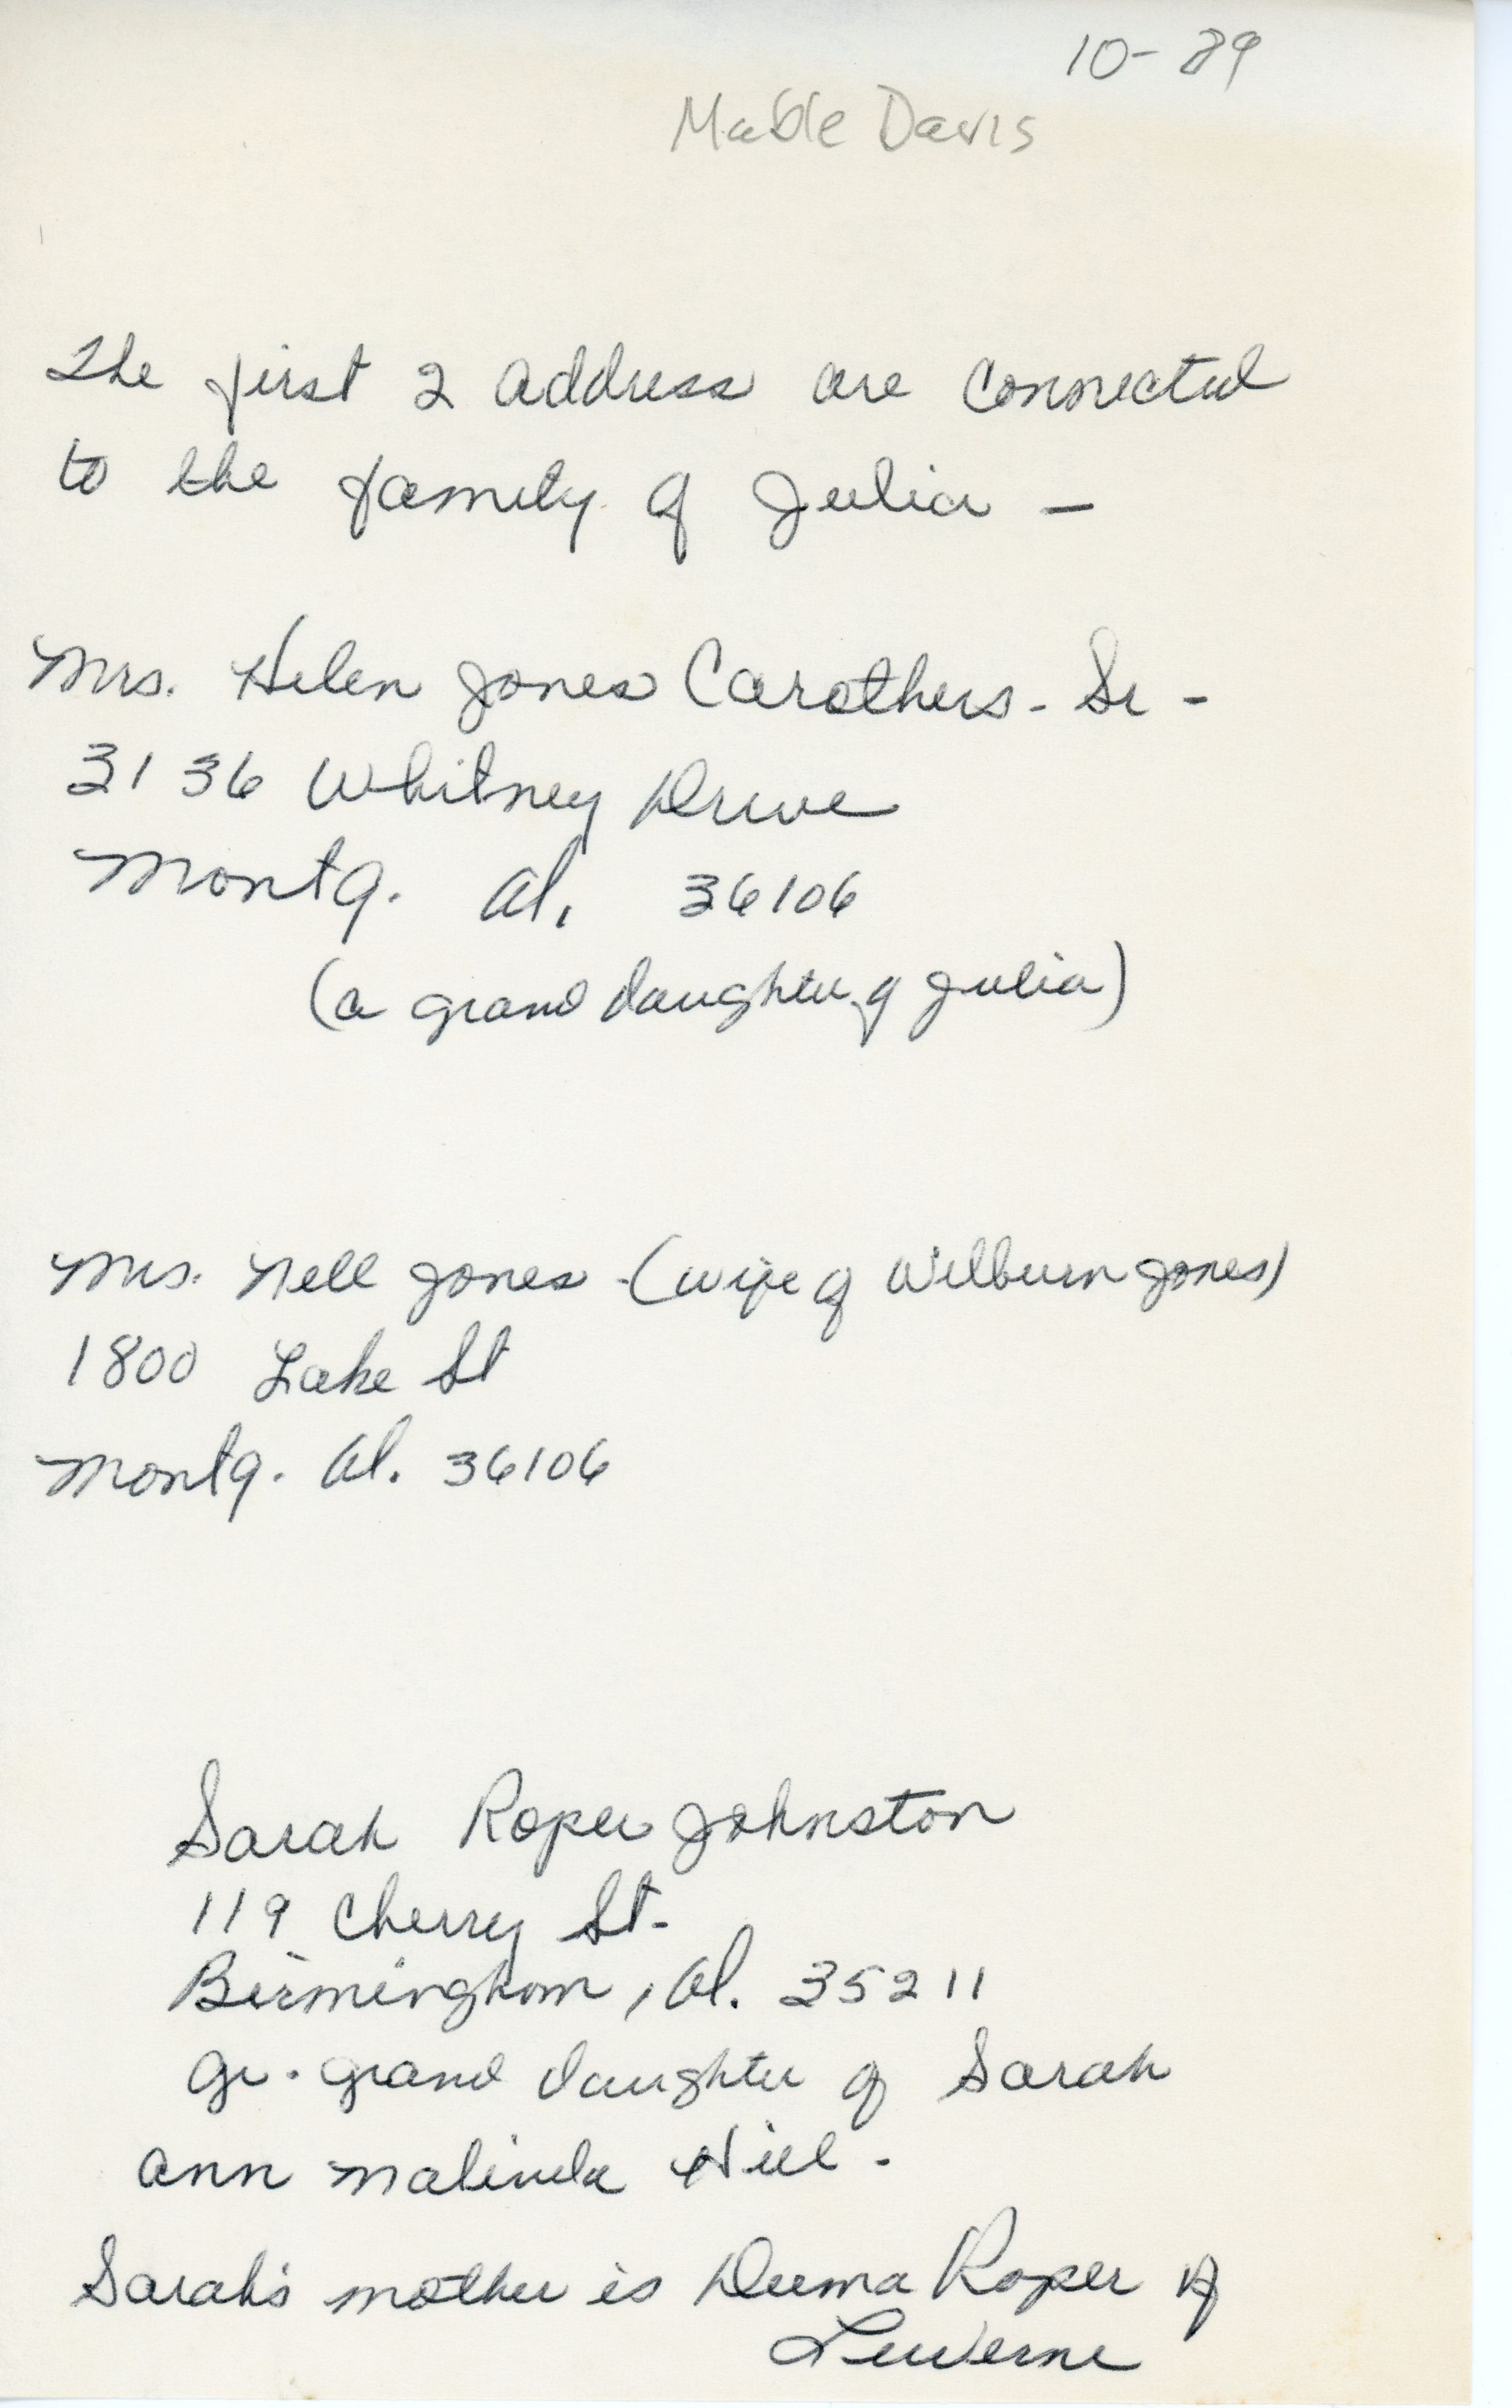 10-89
Mable Davis
The first 2 address are connected
to the family of Julia -
Mrs. Helen Jones Carothers - Sr -
3136 Whitney Drive
Montg. Al. 36106
(a grand daughter of Julia)
Mrs. Nell Jones - (wife of Wilburn Jones)
1800 Lake St
Montg. Al. 36106
Sarah Roper Johnston
119 Cherry St-
Birmingham, Al. 35211
gr. grand daughter of Sarah
Ann Malinda Hill.
Sarah's mother is Roper of
Luverne